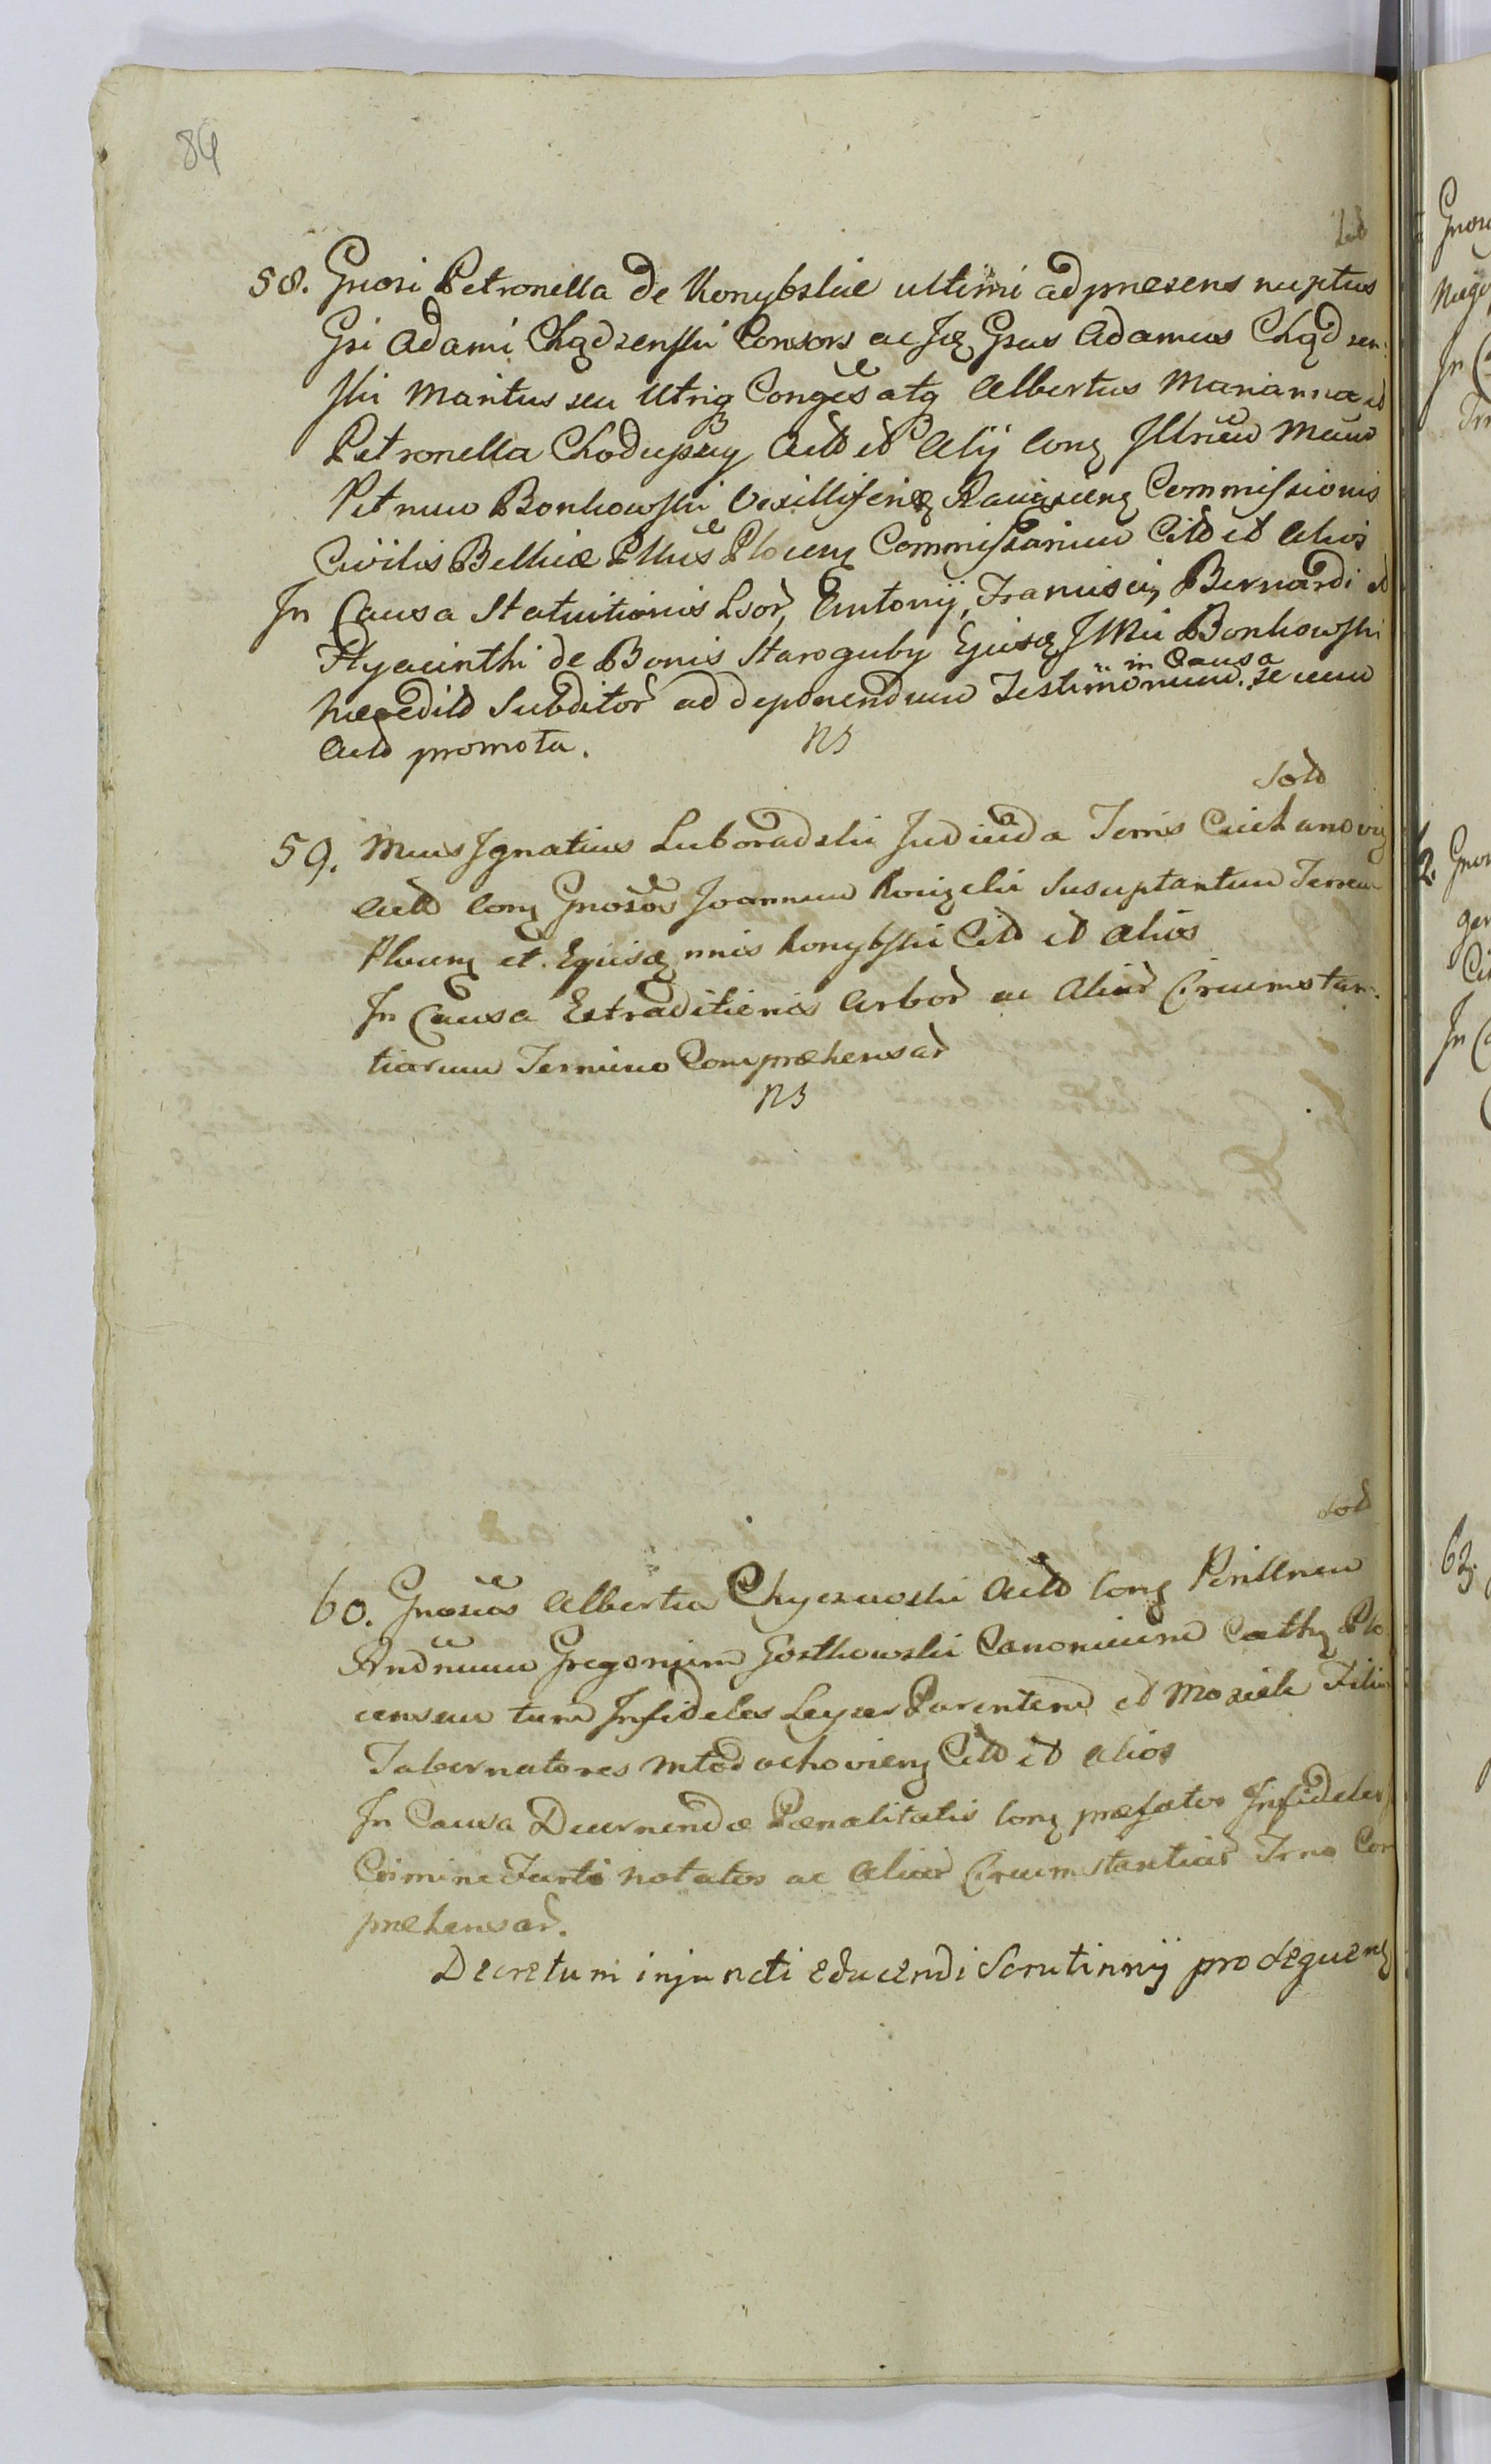 84
58. Gnosi Petronella de Konybskie ultimi ad præsens nuptus
Gsi Adami Chądzenski Consors ac Gsus Adamus Chądzen:
ski Maritus seu utriq Conges atq Albertus Marianna et
Petronella Actt et Alij Conq Illrem Mcum
Petrum Bonkowski Vexilliferum Commissionis
Civilis Bellicæ Pllus Plocens Commissarium Citt et Alios
In Causa Statuitionis Lsor, Antonij, Francisci, Bernardi et
Hyacinthi de Bonis Staroguby Ejusdem Bonkowski
hæredit Subditor ad deponendum Testimonium in Causa secum
Actt promota.
NB
Solt
59. Mcus Ignatius Luboradzki Terris Ciechanovien
Actt Conq Gnosos Joannem Susceptantum Terren
Plocen et Ejusdem Konybski Citt et Alios
In Causa Extraditionis Arbor ac Aliar Circumstan:
tiarum Termino Compræhensar
NB
Solt
60. Gnosus Albertus Actt Conq Perillrem
Andream Gregorium Gostkowski Canonicum Cathq Plo
censem tum Infideles Leyzer Parentem et Moziek Filium
Tabernatores Młodochovien Citt et Alios
In Causa Decernendæ Pœnalitatis Conq præfatos Infideles
Crimine Furti notatos ac Aliar Circumstantiar Trno Com
præhensar.
Decretum injuncti educendi Scrutinnij pro seguenq